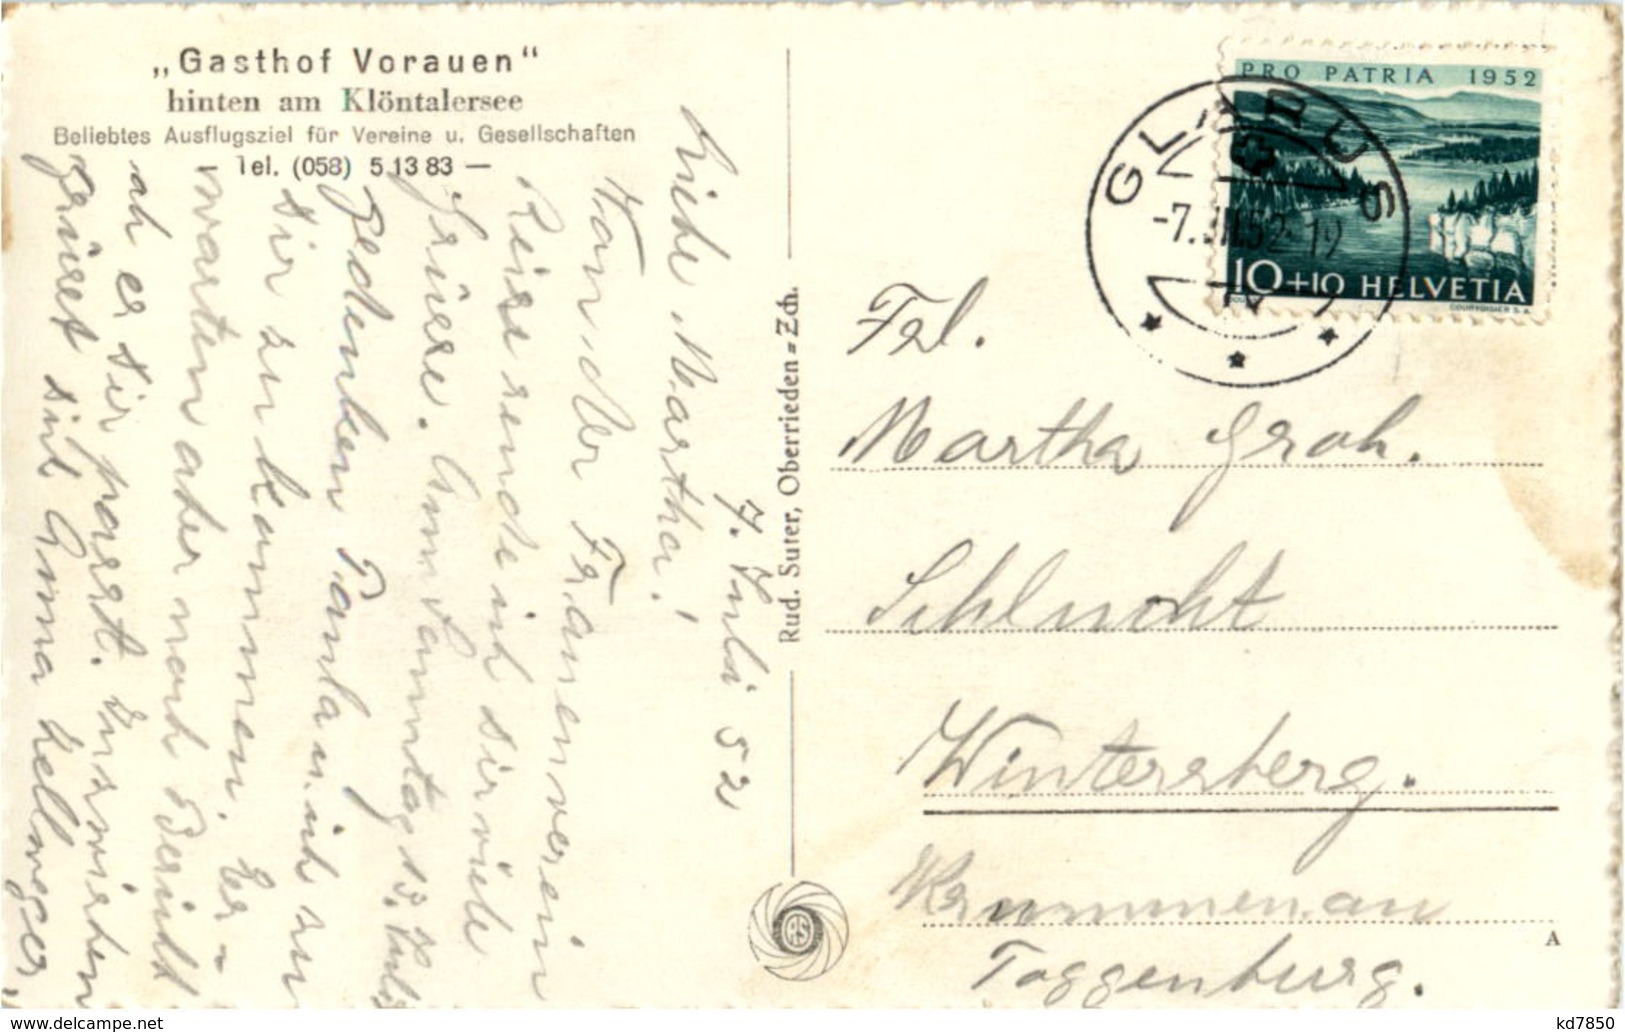 „Gasthof Vorauen“
hinten am Klöntalersee
Beliebtes Ausflugsziel für Vereine u. Gesellschaften
Tel. (058) 5 13 83 —
7. Juli 52
Liebe Martha!
Von der Frauenverein
Reise sende ich dir viele
Grüsse. Am Sonntag 13. Juli
gedenken Paula u. ich zu
dir zu kommen. Er-
warten aber noch Bericht
ob es dir passt. Inzwischen
grüsst dich Emma Hellweger,
Rud. Suter, Oberrieden-Zch.
RS
PRO PATRIA 1952
10+10 HELVETIA
COURVOISIER S.A.
GLARUS
-7.VII.52-12
Frl.
Martha Groh.
Schlucht
Wintersberg.
Krummenau
Toggenburg.
A
www.delcampe.net
kd7850